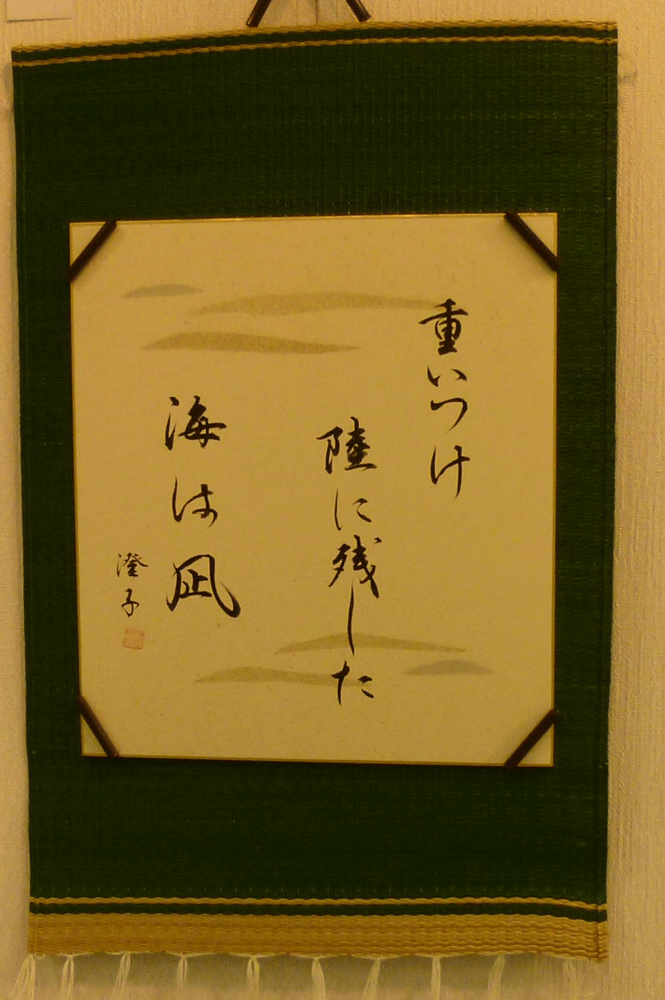 重いつけ
陸に残した
海は凪
澄子